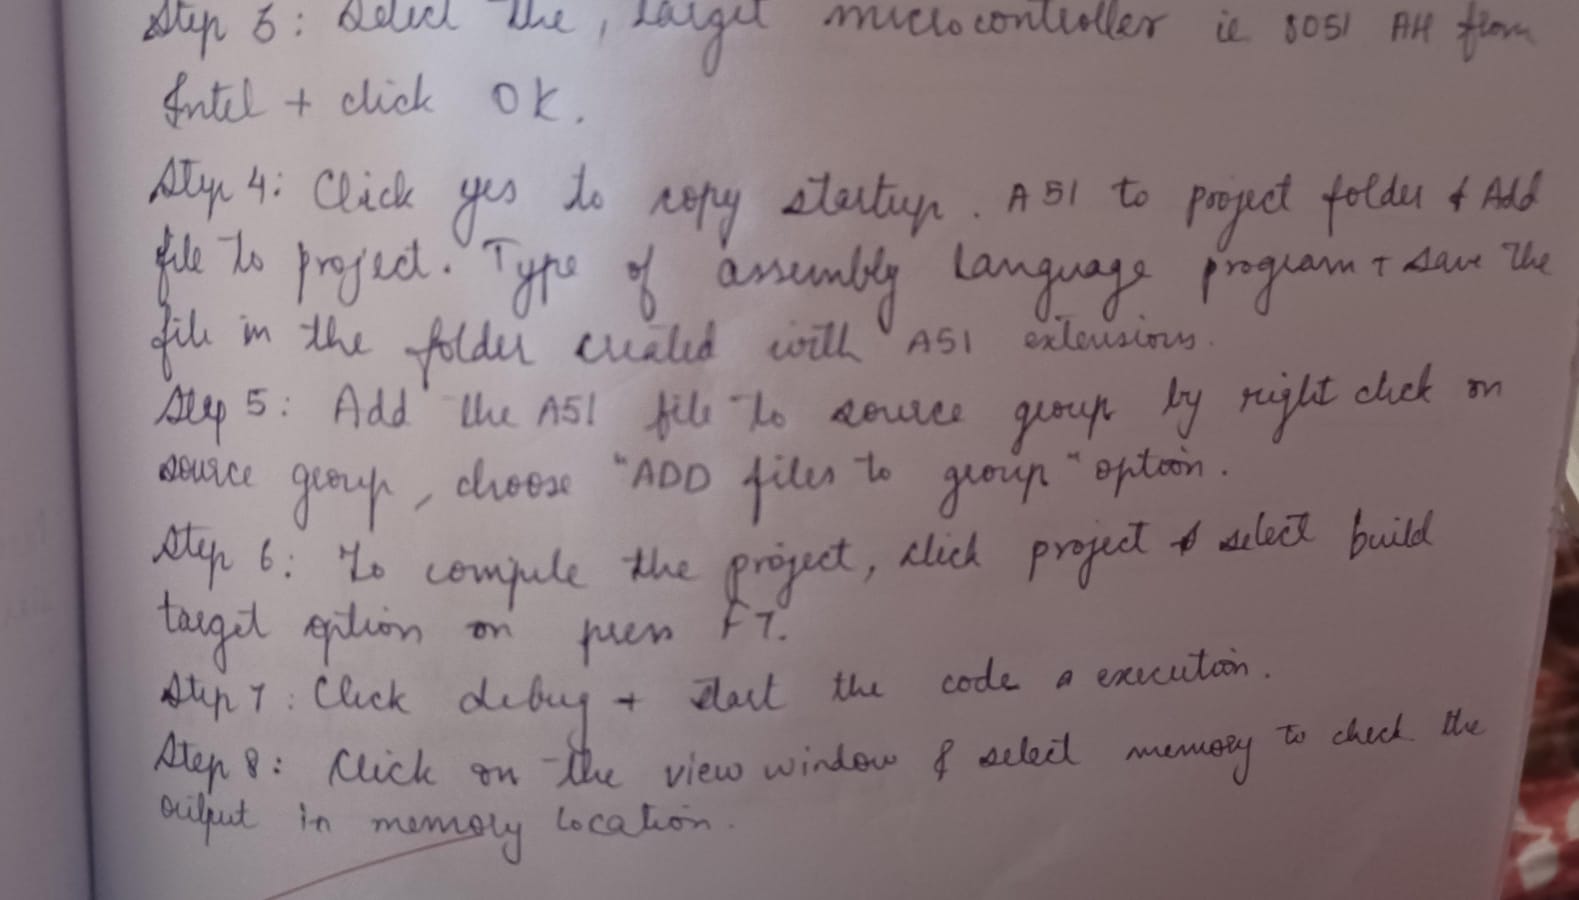 Step 3: Select the, target microcontroller ie 8051 AH from
Intel + click OK.
Step 4: Click yes to copy startup. A51 to project folder & Add
file to project. Type of assembly language program + save the
file in the folder created with A51 extensions.
Step 5: Add the A51 file to source group by right click on
source group, choose "ADD files to group" option.
Step 6: To compile the project, click project & select build
target option on press F7.
Step 7: Click debug + start the code a execution.
Step 8: Click on the view window & select memory to check the
output in memory location.